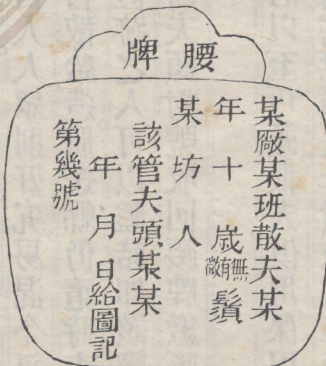 腰牌
某廠某班散夫某
年十歲無微有鬚
某坊人
該管夫頭某某
年月日給圖記
第幾號